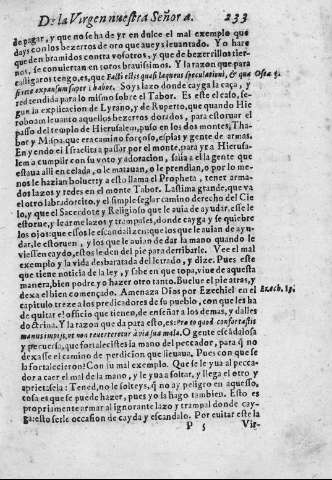 De la Virgen nuestra Señora. 233
de pagar, y que no se ha de yr en dulce el mal exemplo que
days con los bezerros de oro que aueys leuantado. Yo hare
que den bramidos contra vosotros, y que de bezerrillos tier-
nos, se conuiertan en toros brauissimos. Y la razon que para
castigaros tengo, es, que Facti estis quasi laqueus speculationi, & qua Osea 5.
si rete expansum super thabor. Soys lazo donde cayga la caça, y
red tendida para lo mismo sobre el Tabor. Es este el caso, se-
gun la explicacion de Lyrano, y de Ruperto, que quando Hie
roboan leuanto aquellos bezerros dorados, para estoruar el
passo del templo de Hierusalem, puso en los dos montes, Tha-
bor y Maspa, que era camino forçoso, espias y gente de armas.
En yendo el Israelita a passar por el monte, para yr a Hierusa-
lem a cumplir con su voto y adoracion, salia a el la gente que
estaua alli en celada, o le matauan, o le prendian, o por lo me-
nos le hazian boluer: y a esto llama el Propheta, tener arma-
dos lazos y redes en el monte Tabor. Lastima grande, que va
el otro labradorcito, y el simple seglar camino derecho del Cie
lo, y que el Sacerdote y Religioso que le auia de ayudar, esse le
estorue, y le arme lazos y trampales, donde cayga y se quiebre
los ojos: que essos le escandalizen: que los que le auian de ayu-
dar, le estoruen, y los que le auian de dar la mano quando le
viessen caydo, estos le den del pie para derribarle. Vee el mal
exemplo y la vida desbaratada del letrado, y dize. Pues este
que tiene noticia de la ley, y sabe en que topa, viue de aquesta
manera, bien podre yo hazer otro tanto. Buelue el pie atras, y
dexa el bien começado. Amenaza Dios por Ezechiel en el Ezech. 13.
capitulo treze a los predicadores de su pueblo, con que les ha
de quitar el officio que tienen, de enseñar a los demas, y dalles
doctrina. Y la razon que da para esto, es: Pro eo quod confortastis
manus impij, vt non reuerteretur à via sua mala. O gente escãdalosa
y peruersa, que fortalecistes la mano del peccador, para q̃ no
dexasse el camino de perdicion que lleuaua. Pues con que se
la fortalecieron? Con su mal exemplo. Que se le yua al pecca-
dor a caer el mal de la mano, y le yua a soltar, y llega el otro y
aprietasela: Tened, no le solteys, q̃ no ay peligro en aquesso,
cosa es que se puede hazer, pues yo la hago tambien. Esto es
propriamente armar al ignorante lazo y trampal donde cay-
ga: esto serle occasion de cayda y escandalo. Por euitar este la
P 5 Vir-